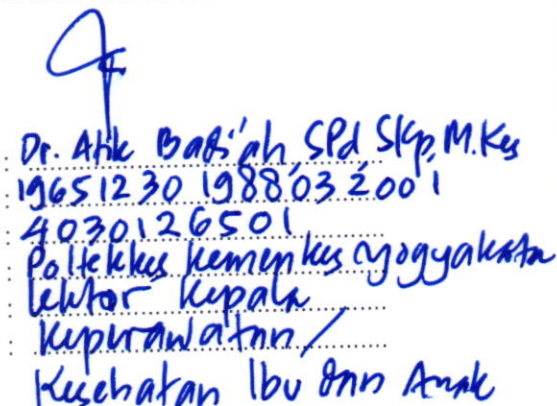 : Dr. Atik Badi'ah SPd SKp, M.Kes
: 19651230 198803 2001
: 4030126501
: Poltekkes Kemenkes Yogyakarta
: Lektor Kepala
: Keperawatan /
Kesehatan Ibu dan Anak